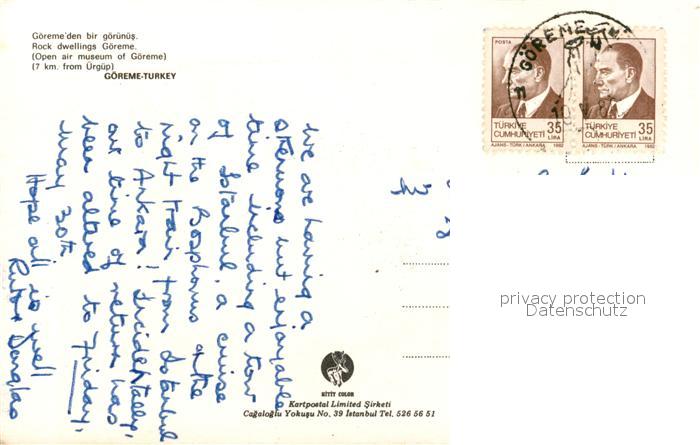 Göreme'den bir görünüş.
Rock dwellings Göreme.
(Open air museum of Göreme)
(7 km. from Ürgüp)
GÖREME-TURKEY
POSTA
35
LİRA
TÜRKİYE
CUMHURİYETİ
AJANS - TÜRK / ANKARA 1982
35
LİRA
TÜRKİYE
CUMHURİYETİ
AJANS - TÜRK / ANKARA 1982
GÖREME
We are having a
strenuous but enjoyable
time including a tour
of Istanbul, a cruise
on the Bosphorus & the
night train from Istanbul
to Ankara! Incidentally,
our time of return has
been altered to Friday,
May 30th
Hope all is well
Ruth & Douglas
privacy protection
Datenschutz
HİTİT COLOR
Kartpostal Limited Şirketi
Cağaloğlu Yokuşu No. 39 İstanbul Tel. 526 56 51